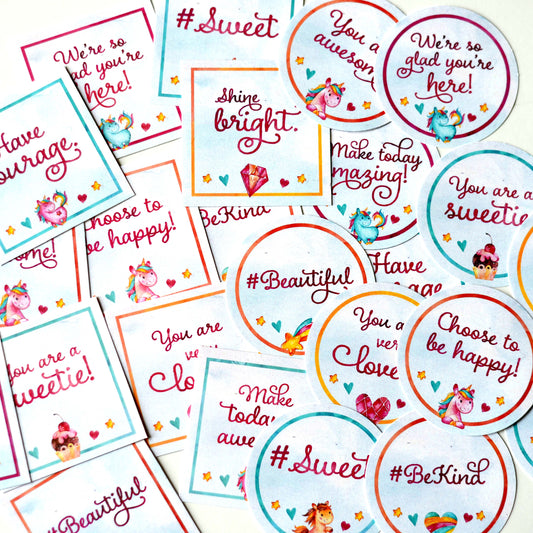 We're so
glad you're
here!
#Sweet
You a
awesom
We're so
glad you're
here!
Have
ourage.
Shine
bright.
Make today
mazing!
You are a
sweetie!
ome!
Choose to
be happy!
#BeKind
Have
courage
#Beautiful
You are
ver
love
Choose to
be happy!
ou are a
weetie!
You are
ve
lo
Make
toda
awe
#Sweet
#BeKind
#Beautiful